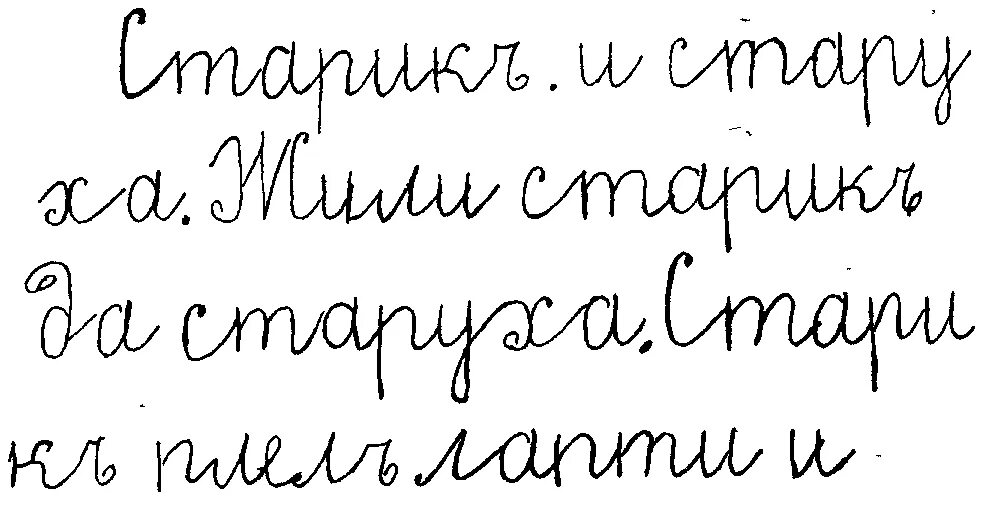 Старикъ. и стару
ха. Жили старикъ
да старуха. Стари
къ плелъ лапти и